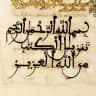 بسم الله الرحمن الرحيم
تنزيل الكتب
من الله العزيز